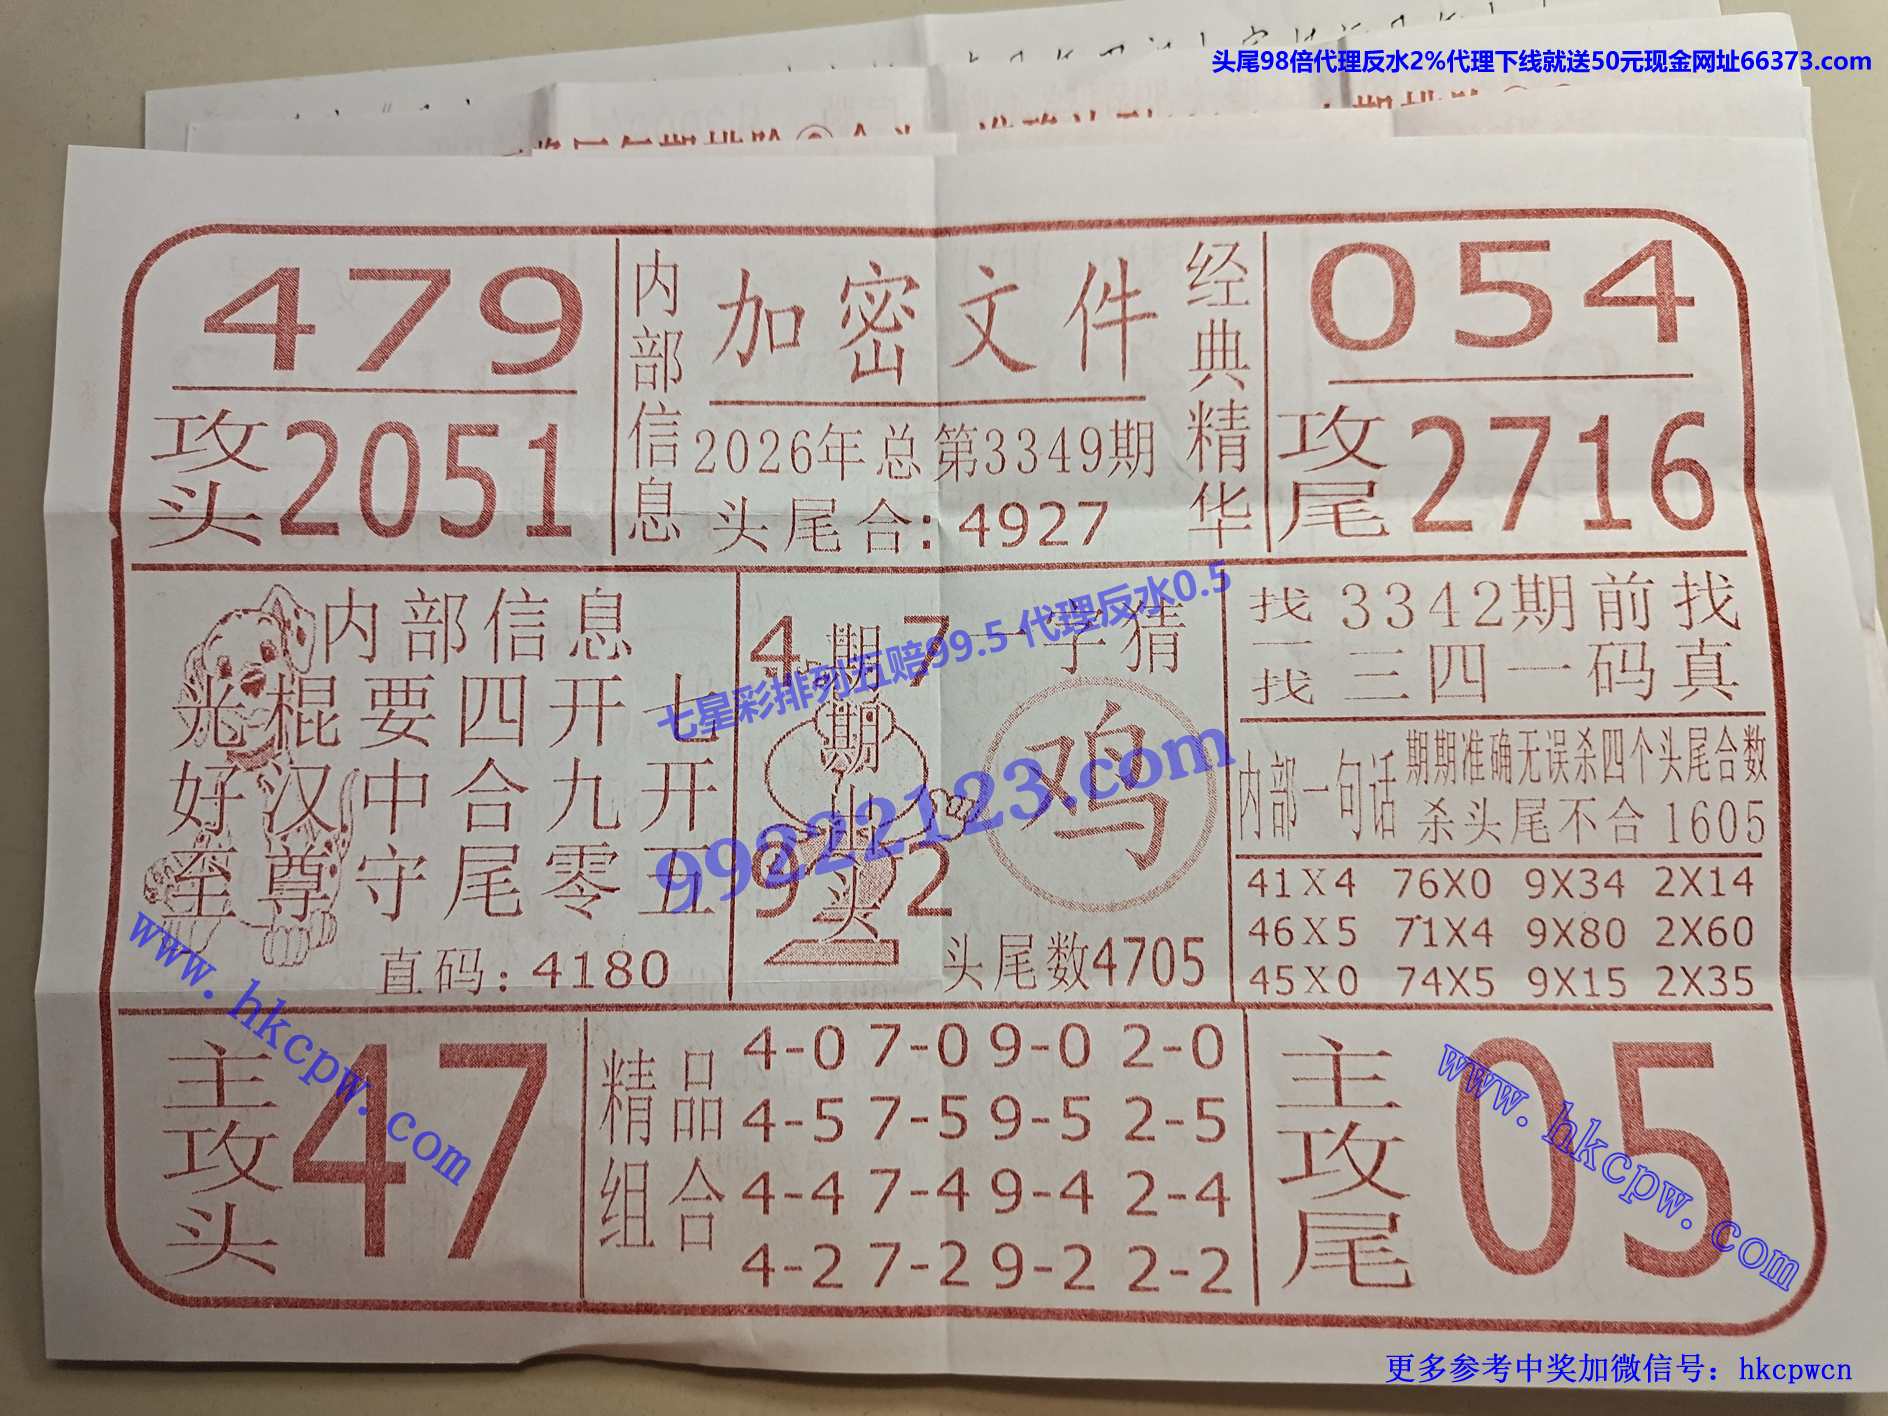 头尾98倍代理反水2%代理下线就送50元现金网址66373.com
479
攻头2051
内部信息
加密文件
2026年总第3349期
头尾合:4927
经典精华
054
攻尾2716
内部信息
光棍要四开七
好汉中合九开
至尊守尾零五
直码:4180
4 7
期期出头
9 2
一字猜
鸡
头尾数4705
找一找
3342期前找
三四一码真
内部一句话
期期准确无误杀四个头尾合数
杀头尾不合1605
41X4 76X0 9X34 2X14
46X5 71X4 9X80 2X60
45X0 74X5 9X15 2X35
主攻头
47
精品组合
4-0 7-0 9-0 2-0
4-5 7-5 9-5 2-5
4-4 7-4 9-4 2-4
4-2 7-2 9-2 2-2
主攻尾
05
七星彩排列五赔99.5 代理反水0.5
99222123.com
www.hkcpw.com
www.hkcpw.com
更多参考中奖加微信号：hkcpwcn